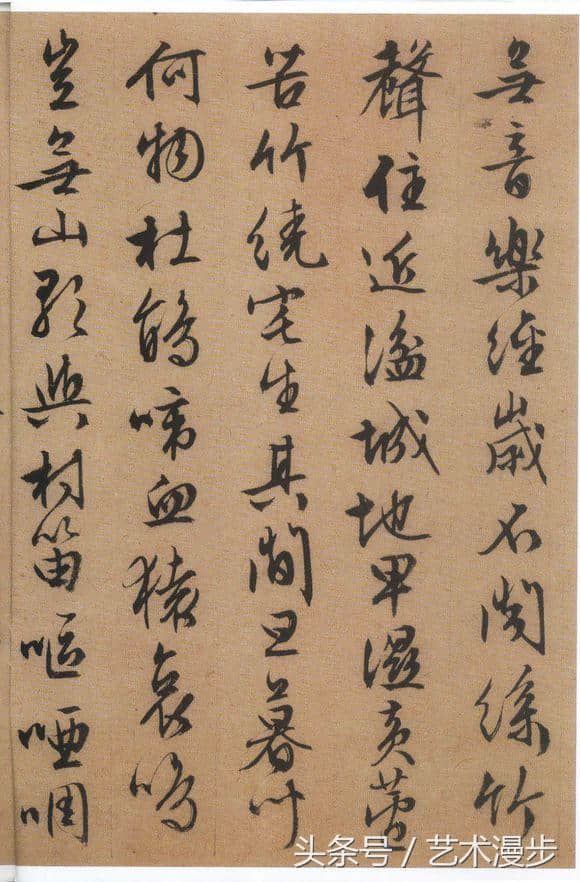 無音樂經歲不聞絲竹
聲住近湓城地卑濕黃蘆
苦竹繞宅生其間旦暮
何物杜鵑啼血猿哀鳴
豈無山歌與村笛嘔啞啁
头条号 / 艺术漫步